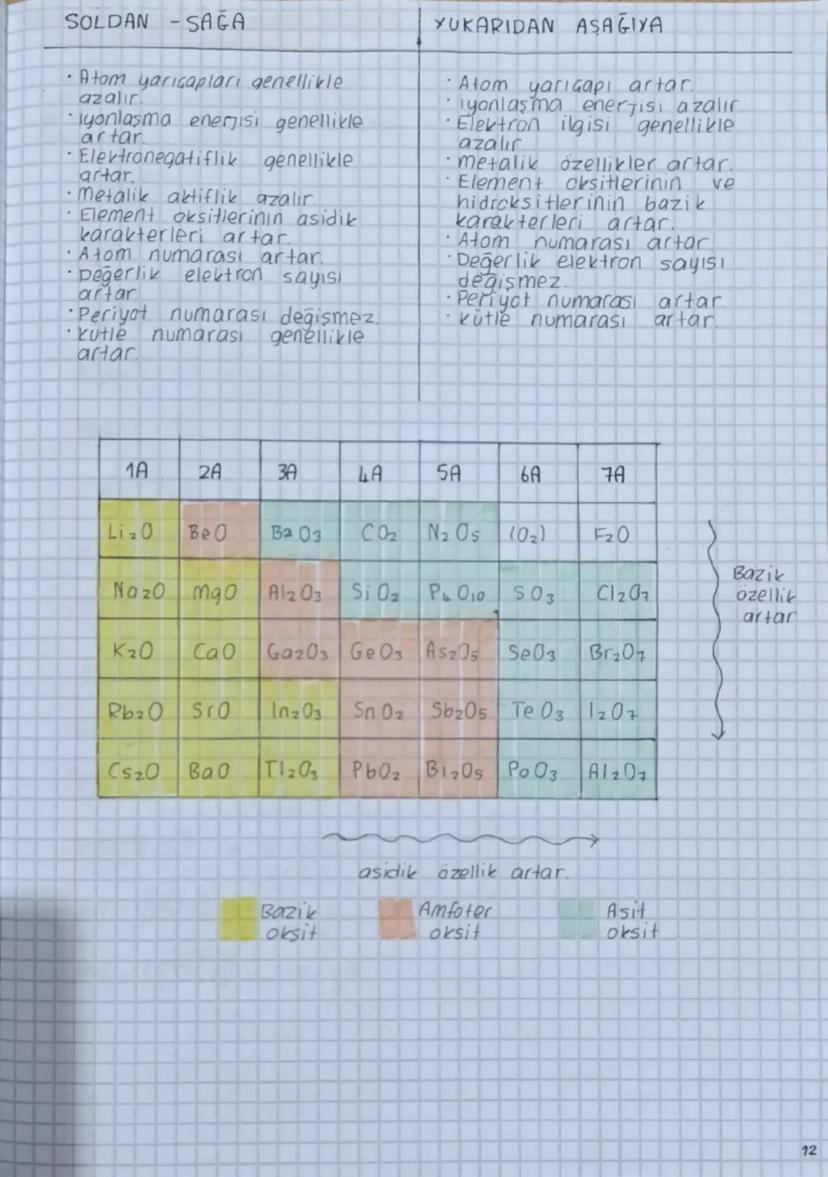 SOLDAN - SAĞA
• Atom yarıçapları genellikle
azalır.
• iyonlaşma enerjisi genellikle
artar.
• Elektronegatiflik genellikle
artar.
• Metalik aktiflik azalır.
• Element oksitlerinin asidik
karakterleri artar.
• Atom numarası artar.
• Değerlik elektron sayısı
artar.
• Periyot numarası değişmez.
• Kütle numarası genellikle
artar.
YUKARIDAN AŞAĞIYA
• Atom yarıçapı artar.
• iyonlaşma enerjisi azalır
• Elektron ilgisi genellikle
azalır
• metalik özellikler artar.
• Element oksitlerinin ve
hidroksitlerinin bazik
karakterleri artar.
• Atom numarası artar
• Değerlik elektron sayısı
değişmez.
• Periyot numarası artar
• Kütle numarası artar.
1A 2A 3A 4A 5A 6A 7A
Li₂O BeO B₂O₃ CO₂ N₂O₅ (O₂) F₂O
Na₂O MgO Al₂O₃ SiO₂ P₄O₁₀ SO₃ Cl₂O₇
K₂O CaO Ga₂O₃ GeO₃ As₂O₅ SeO₃ Br₂O₇
Rb₂O SrO In₂O₃ SnO₂ Sb₂O₅ TeO₃ I₂O₇
Cs₂O BaO Tl₂O₃ PbO₂ Bi₂O₅ PoO₃ Al₂O₇
Bazik
özellik
artar
asidik özellik artar.
Bazik
oksit
Amfoter
oksit
Asit
oksit
12